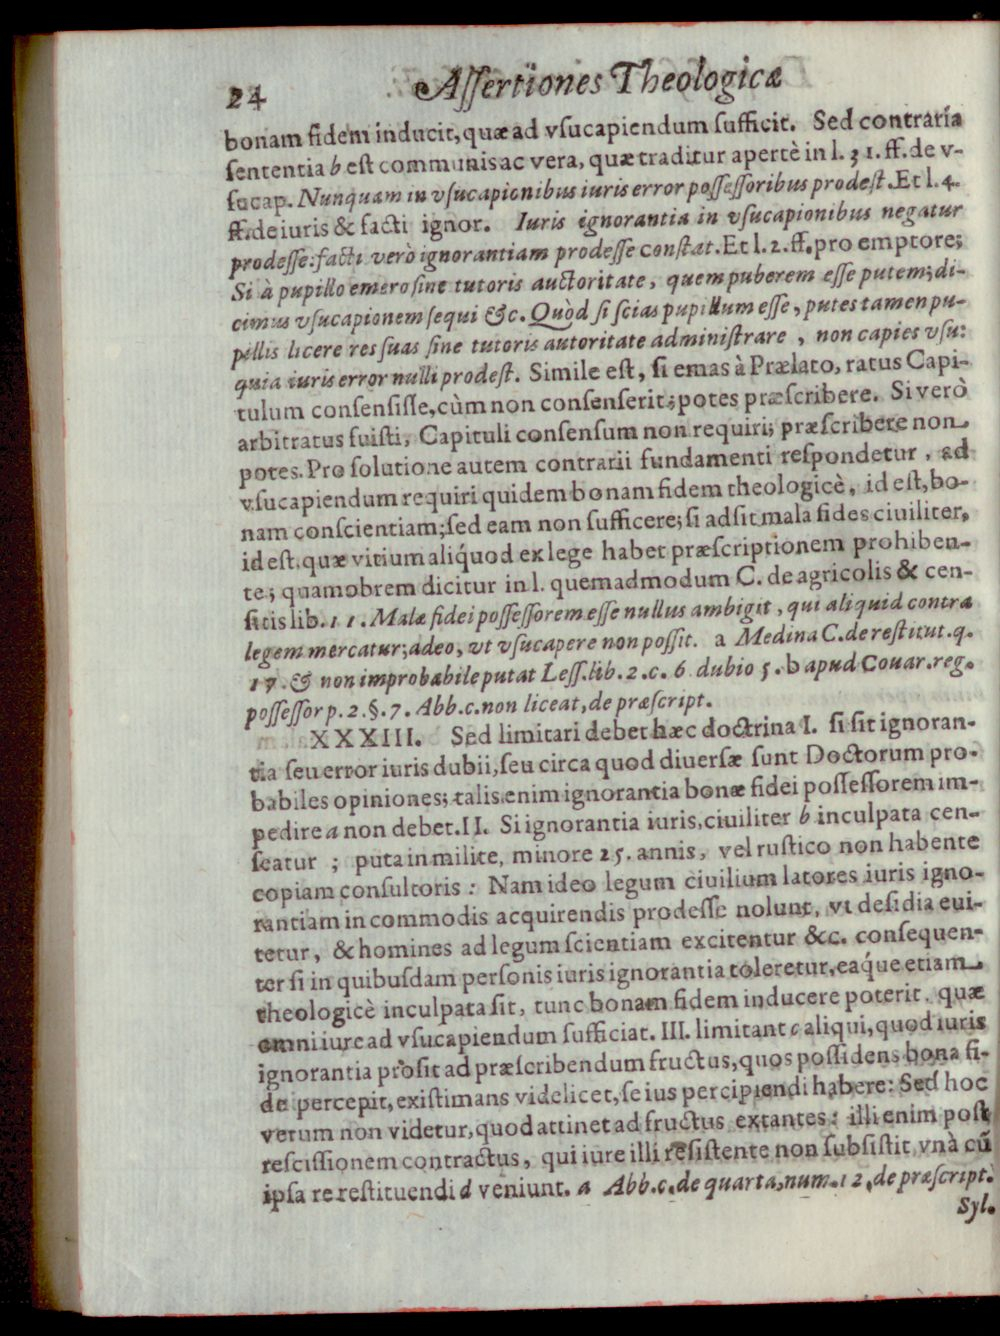 24 Aſſertiones Theologicæ
bonam fidem inducit, quæ ad vſucapiendum ſufficit. Sed contraria
ſententia b eſt communis ac vera, quæ traditur apertè in l. 31. ff. de v-
ſucap. Nunquam in vſucapionibus iuris error poſſeſſoribus prodeſt. Et l. 4.
ff. de iuris & facti ignor. Iuris ignorantia in vſucapionibus negatur
prodeſſe: facti verò ignorantiam prodeſſe conſtat. Et l. 2. ff. pro emptore;
Si à pupillo emero ſine tutoris auctoritate, quem puberem eſſe putem; di-
cimus vſucapionem ſequi &c. Quòd ſi ſcias pupillum eſſe, putes tamen pu-
pillis licere res ſuas ſine tutoris autoritate adminiſtrare, non capies vſu:
quia iuris error nulli prodeſt. Simile eſt, ſi emas à Prælato, ratus Capi-
tulum conſenſiſſe, cùm non conſenſerit; potes præſcribere. Si verò
arbitratus fuiſti, Capituli conſenſum non requiri; præſcribere non
potes. Pro ſolutione autem contrarii fundamenti reſpondetur, ad
vſucapiendum requiri quidem bonam fidem theologicè, id eſt, bo-
nam conſcientiam; ſed eam non ſufficere; ſi adſit mala fides ciuiliter,
id eſt. quæ vitium aliquod ex lege habet præſcriptionem prohiben-
te; quamobrem dicitur in l. quemadmodum C. de agricolis & cen-
ſitis lib. 11. Malæ fidei poſſeſſorem eſſe nullus ambigit, qui aliquid contra
legem mercatur; adeo, vt vſucapere non poſſit. a Medina C. de reſtitut. q.
17. & non improbabile putat Leſſ. lib. 2. c. 6 dubio 5. b apud Couar. reg.
poſſeſſor p. 2. §. 7. Abb. c. non liceat, de præſcript.
XXXIII. Sed limitari debet hæc doctrina I. ſi ſit ignoran-
tia ſeu error iuris dubii, ſeu circa quod diuerſæ ſunt Doctorum pro-
babiles opiniones; talis enim ignorantia bonæ fidei poſſeſſorem im-
pedire a non debet. II. Si ignorantia iuris, ciuiliter b inculpata cen-
ſeatur ; puta in milite, minore 25. annis, vel ruſtico non habente
copiam conſultoris: Nam ideo legum ciuilium latores iuris igno-
rantiam in commodis acquirendis prodeſſe nolunt, vt deſidia eui-
tetur, & homines ad legum ſcientiam excitentur &c. conſequen-
ter ſi in quibuſdam perſonis iuris ignorantia toleretur, eaq́ue etiam
theologicè inculpata ſit, tunc bonam fidem inducere poterit. quæ
omni iure ad vſucapiendum ſufficiat. III. limitant c aliqui, quod iuris
ignorantia proſit ad præſcribendum fructus, quos poſſidens bona fi-
de percepit, exiſtimans videlicet, ſe ius percipiendi habere: Sed hoc
verum non videtur, quod attinet ad fructus extantes: illi enim poſt
reſciſſionem contractus, qui iure illi reſiſtente non ſubſiſtit, vnà cū
ipſa re reſtituendi d veniunt. a Abb. c. de quarta, num. 12. de præſcript.
Syl.